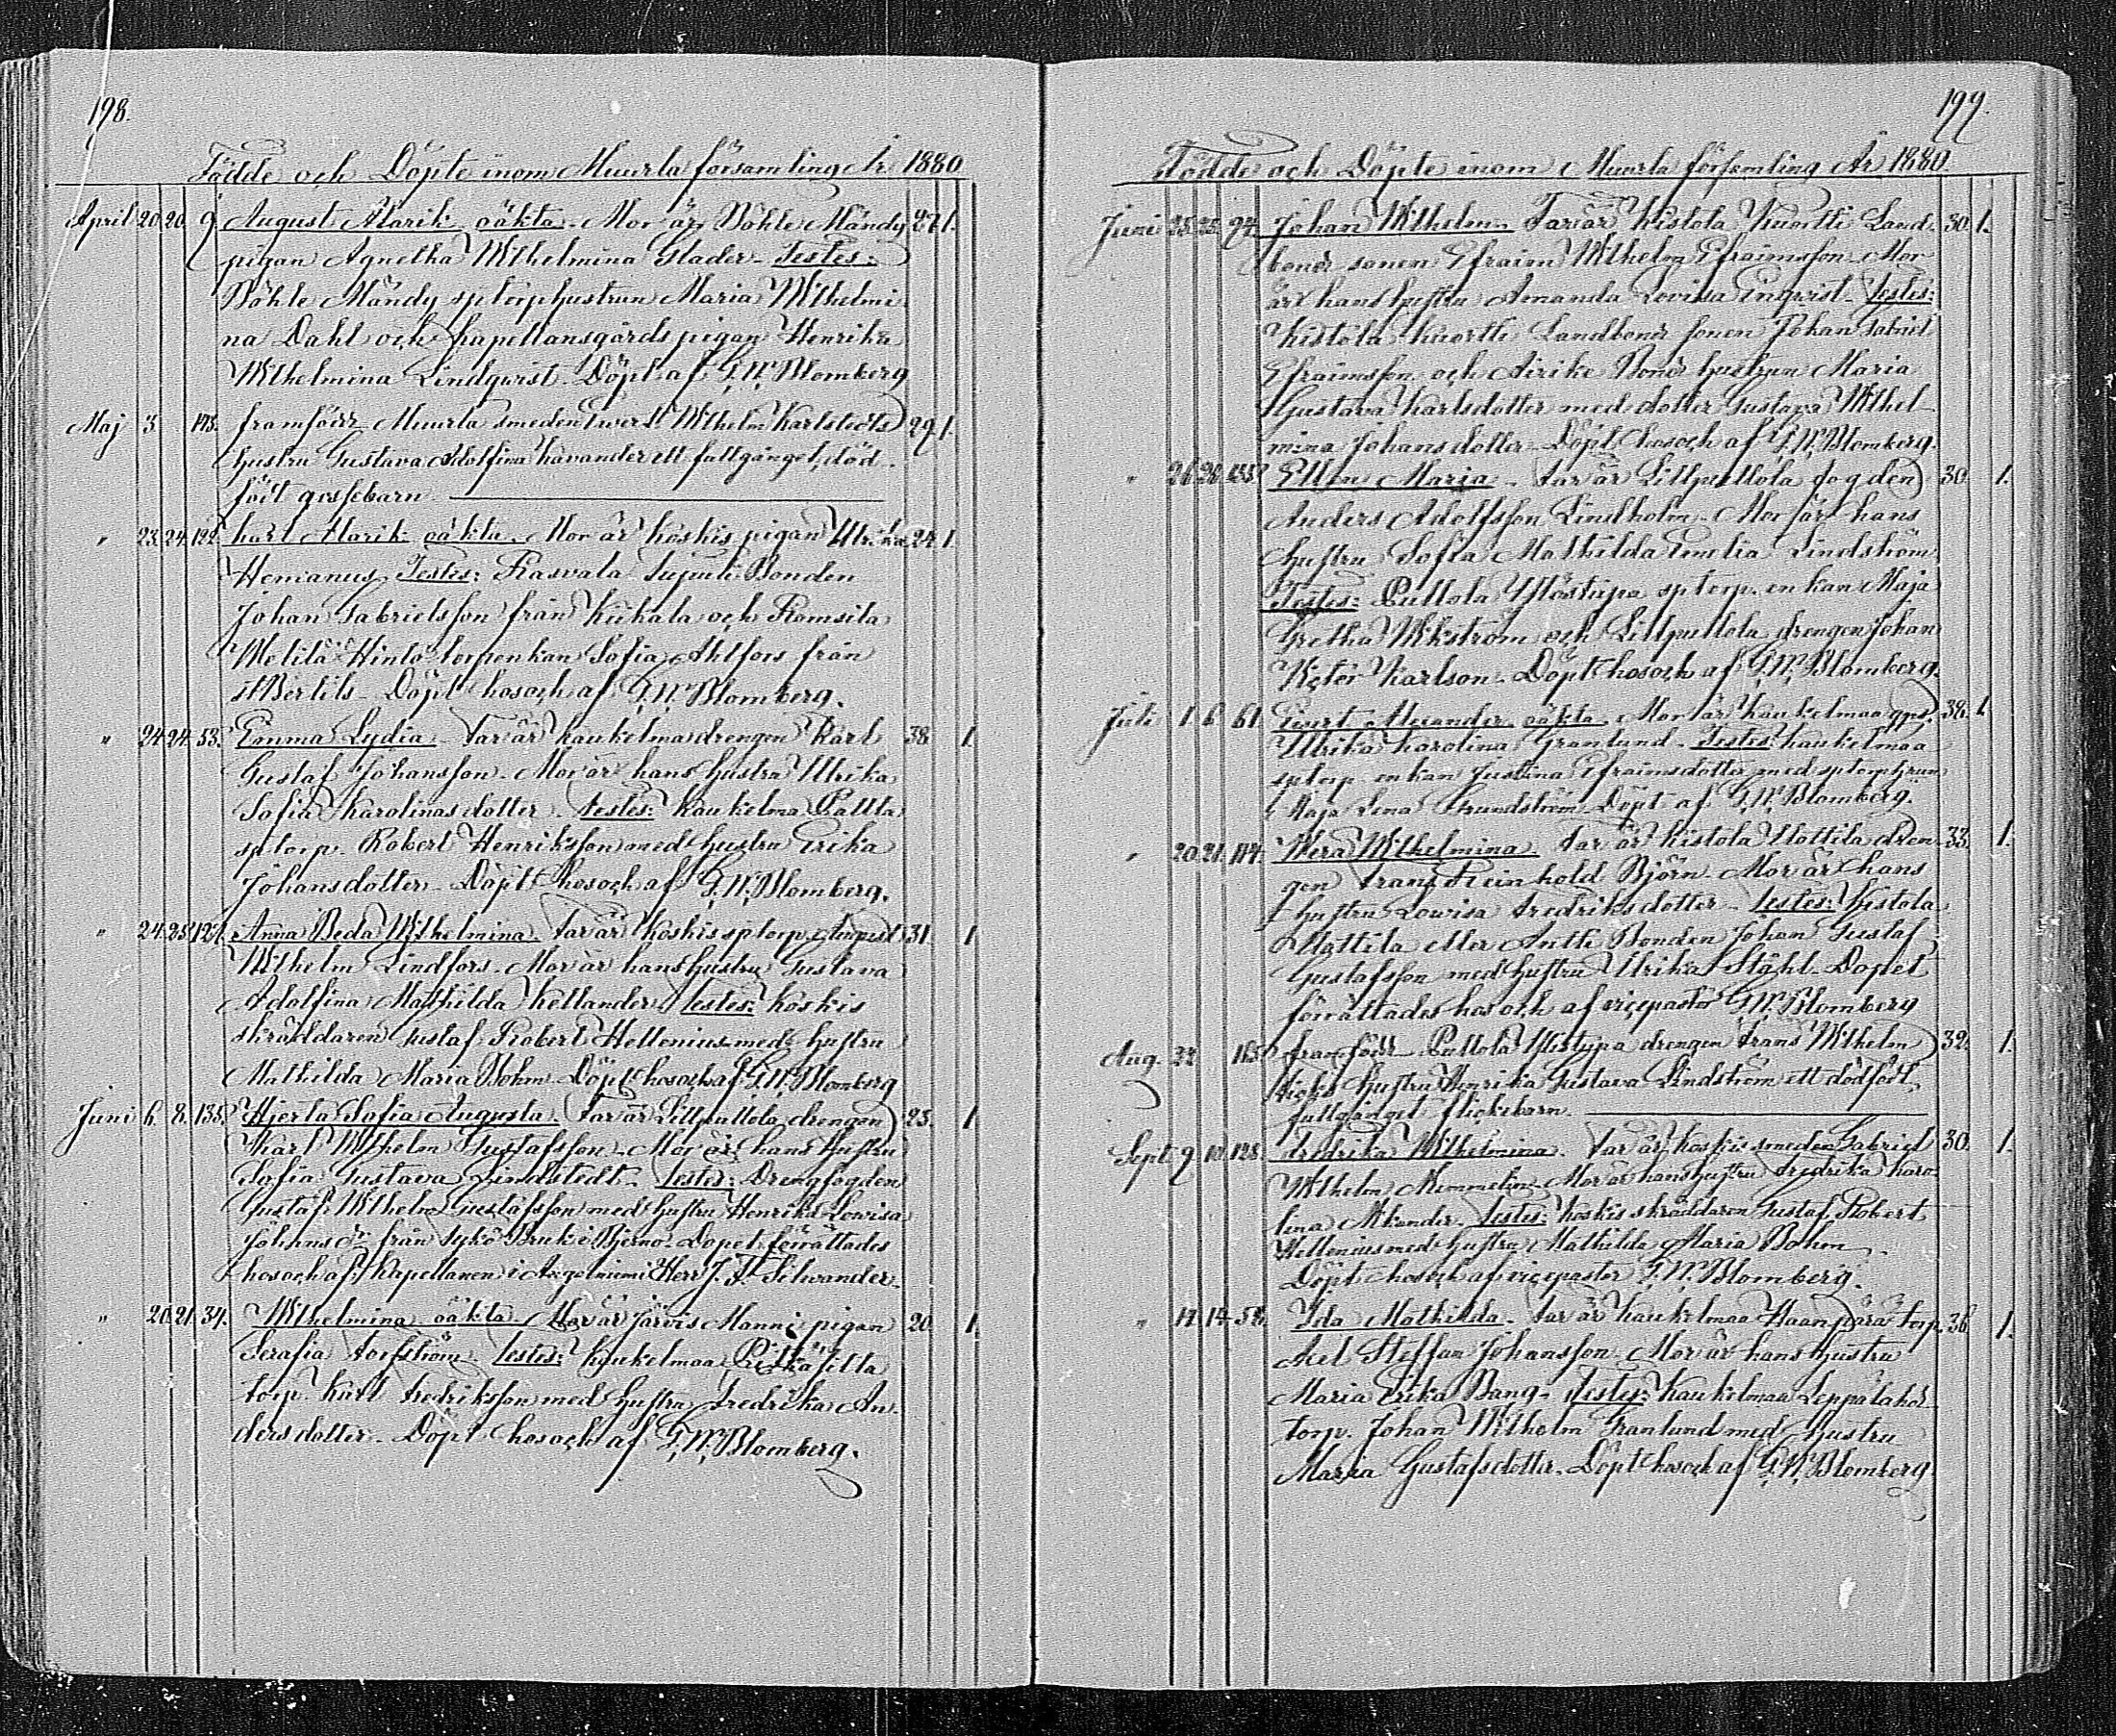 198.
Födde och Döpte inom Muurla församling År 1880
April 20. 20. 9. August Alarik oäkta. Mor är Böhle Mändy 27. 1.
pigan Agnetha Wilhelmina Glader. Testes:
Böhle Mändy sptorphustrun Maria Wilhelmi-
na Dahl och Kapellansgårds pigan Henrika
Wilhelmina Lindqvist. Döpt af G. W. Blomberg
Maj 3. framfödt Muurla smeden Wilhelm Karlstedts 29. 1.
hustru Gustava Adolfina Kavander ett fullgånget, död-
födt gossebarn.
" 23. 24. 122. Karl Alarik oäkta. Mor är Koskis pigan Ulrika 24. 1.
Hemanus. Testes: Rasvala Bonden
Johan Gabrielsson från Kiikala och Romsila
Melilä torpenkan Sofia Ahlfors från
St Bertils. Döpt hos och af G. W. Blomberg.
" 24. 24. 53. Emma Lydia. Far är Kaukelma drengen Karl 38. 1.
Gustaf Johansson. Mor är hans hustru Ulrika
Sofia Karolinasdotter. Testes: Kaukelma
sptorp. Robert Henriksson med hustru Erika
Johansdotter. Döpt hos och af G. W. Blomberg.
" 24. 25. 127. Anna Beda Wilhelmina. Far är Koskis sptorp. August 31. 1
Wilhelm Lindfors. Mor är hans hustru Gustava
Adolfina Mathilda Kellander. Testes: Koskis
skräddaren Gustaf Robert Hellenius med hustru
Mathilda Maria Bohm. Döpt hos och af G. W. Blomberg
Juni 6. 8. 135. Hjerta Sofia Augusta. Far är Lillpullola drengen 23. 1
Karl Wilhelm Gustafsson. Mor är hans hustru
Sofia Gustava Lindstedt. Testes: Drengfogden
Gustaf Wilhelm Gustafsson med hustru Henrika Lowisa
Johansdr från Tykö Bruk i Bjerno. Dopet förrättades
hos och af Kapellanen i Angelniemi Herr J. F. Silwander.
" 20. 21. 34. Wilhelmina oäkta. Mor är Järvis Manni pigan 20. 1.
Serafia Forsström. Testes: Kaukelmaa
torp. Karl Fredriksson med hustru Fredrika An-
dersdotter. Döpt hos och af G. W. Blomberg.
199.
Födde och Döpte inom Muurla församling År 1880.
Juni 25. 25. 97. Johan Wilhelm. Far är Kistola Kuortti Land- 30. 1.
bond sonen Efraim Wilhelm Efraimsson. Mor
är hans hustru Amanda Lovisa Enqvist. Testes:
Kistola Kuortti Landbond sonen Johan Gabriel
Efraimsson och Airike Bond hustrun Maria
Gustava Karlsdotter med dotter Gustava Wilhel-
mina Johansdotter. Döpt hos och af G. W. Blomberg.
" 26. 28. Ellen Maria. Far är Lillpullola fogden 30. 1.
Anders Adolfsson Lindholm. Mor är hans
hustru Sofia Mathilda Emelia Lindström.
Testes: Pullola sptorp. enkan Maja
Gretha Wikström och Lillpullola drengen Johan
Victor Karlson. Döpt hos och af G. W. Blomberg.
Juli 1. 6. 61. Ewert Alexander oäkta. Mor är Kaukelmaa 38. 1.
Ulrika Karolina Granlund. Testes: Kaukelmaa
sptorp. enkan Justina Efraimsdotter med sptorphrun
Maja Lena Grundström. Döpt af G. W. Blomberg.
" 20. 21. 114. Wera Wilhelmina. Far är Kistola Uottila dren- 33. 1.
gen Frans Reinhold Björn. Mor är hans
hustru Lowisa Fredriksdotter. Testes: Kistola
Bonden Johan Gustaf
Gustafsson med hustru Ulrika Ståhl. Dopet
förrättades hos och af vicepastor G. W. Blomberg
Aug. framfödt Pullola drengen Frans Wilhelm 32. 1.
hustru Henrika Gustava Lindström ett dödfödt,
fullgånget flickebarn.
Sept 9. 10. 128. Fredrika Wilhelmina. Far är Koskis smeden Gabriel 30. 1.
Wilhelm Nummelin. Mor är hans hustru Fredrika Karo-
lina Mikander. Testes: Koskis skräddaren Gustaf Robert
Hellenius med hustru Mathilda Maria Bohm.
Döpt hos och af vicepastor G. W. Blomberg.
" 14. Ida Mathilda. Far är Kaukelmaa Haanpärä torp. 36. 1.
Axel Steffan Johansson. Mor är hans hustru
Maria Erika Bang. Testes: Kaukelmaa
torp. Johan Wilhelm Granlund med hustru
Maria Gustafsdotter. Döpt hos och af G. W. Blomberg.